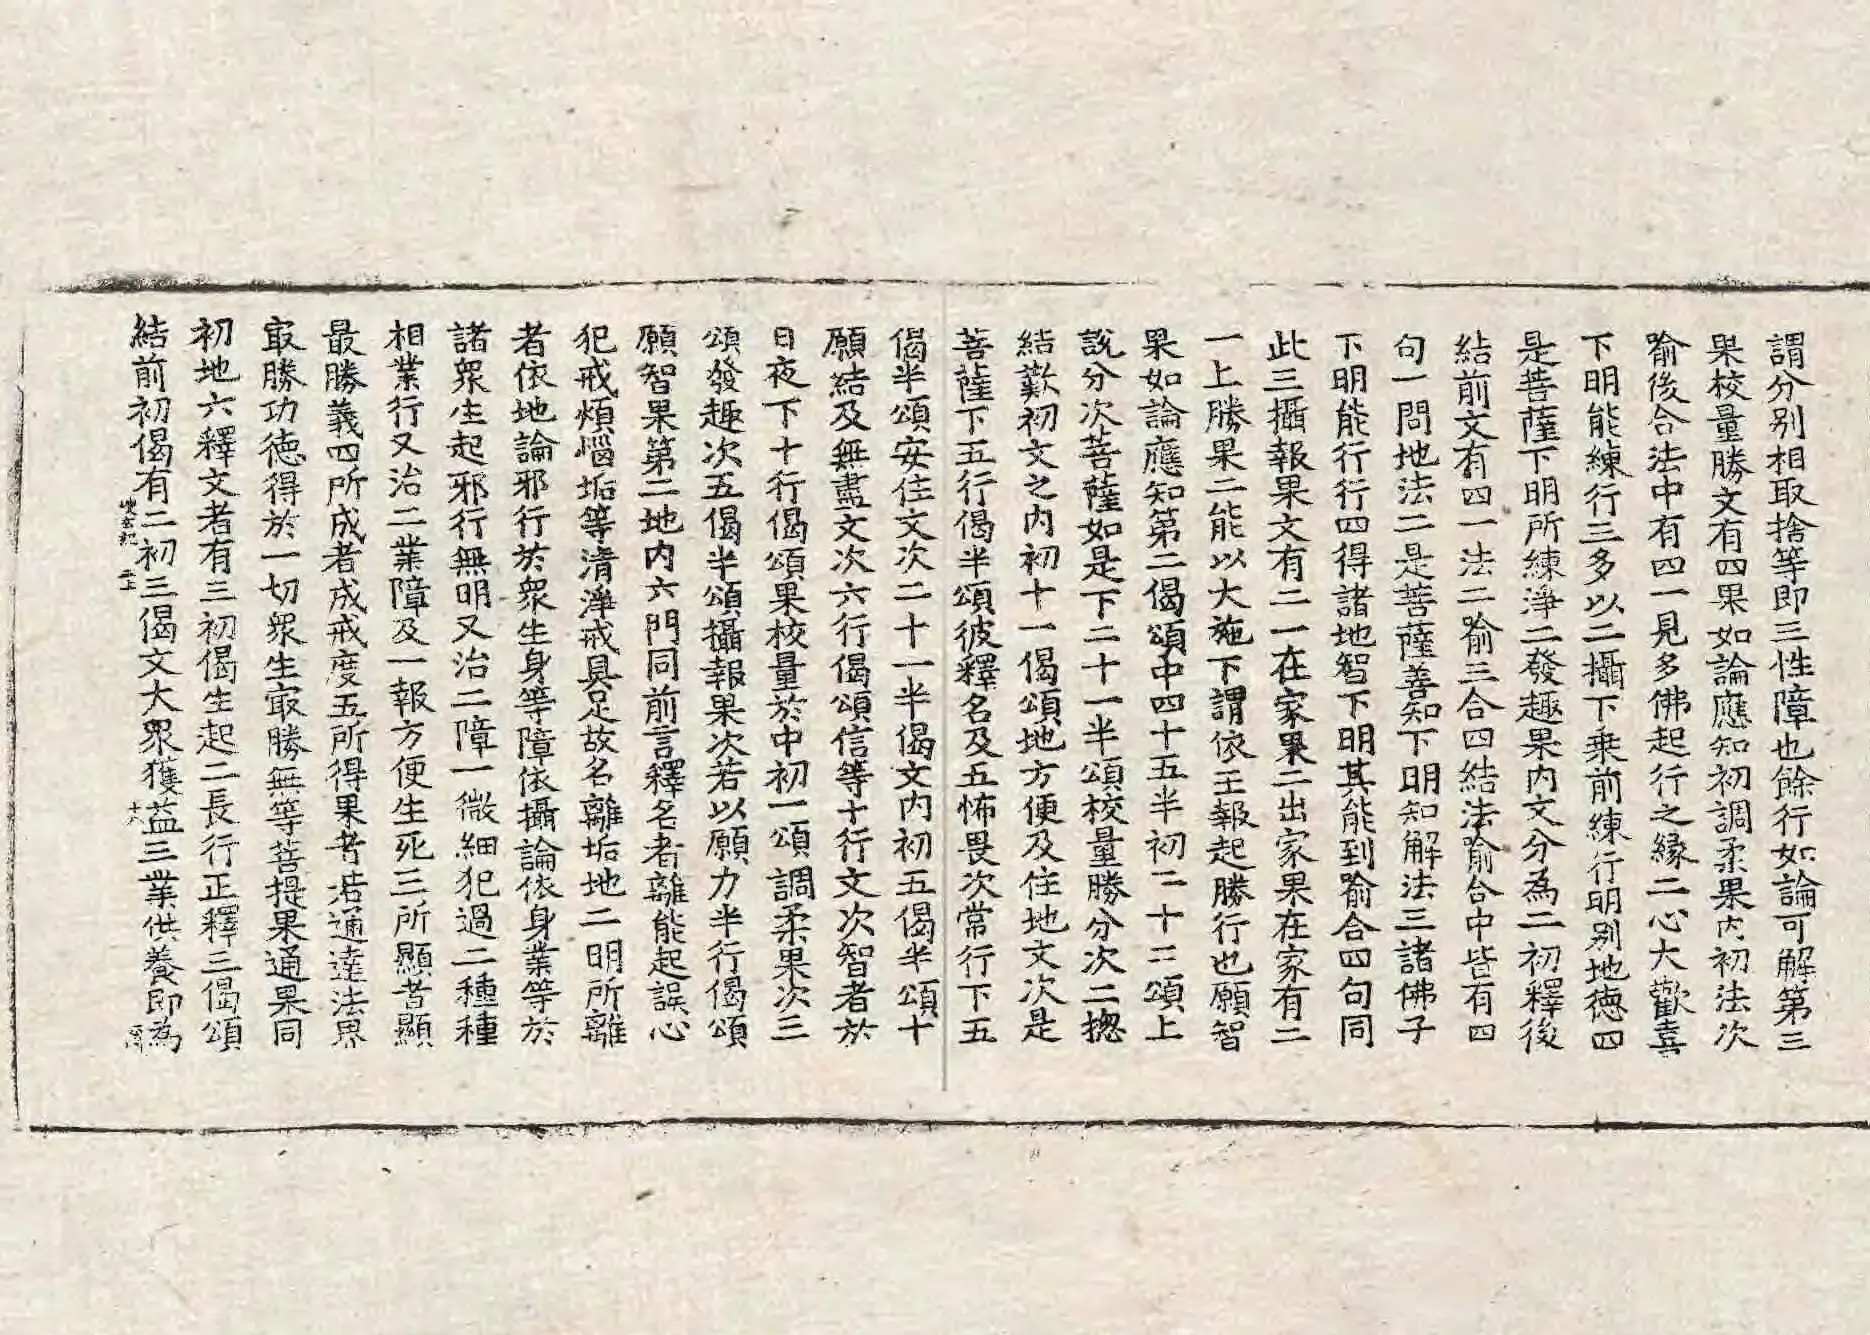 謂分別相取捨等即三性障也餘行如論可解第三
果校量勝文有四果如論應知初調柔果內初法次
喻後合法中有四一見多佛起行之緣二心大歡喜
下明能練行三多以二攝下乗前練行明別地德四
是菩薩下明所練淨二發趣果內文分為二初釋後
結前文有四一法二喻三合四結法喻合中皆有四
句一問地法二是菩薩善知下明知解法三諸佛子
下明能行行四得諸地智下明其能到喻合四句同
此三攝報果文有二一在家果二出家果在家有二
一上勝果二能以大施下謂依王報起勝行也願智
果如論應知第二偈頌中四十五半初二十二頌上
說分次菩薩如是下二十一半頌校量勝分次二揔
結歎初文之內初十一偈頌地方便及住地文次是
菩薩下五行偈半頌彼釋名及五怖畏次常行下五
偈半頌安住文次二十一半偈文內初五偈半頌十
願結及無盡文次六行偈頌信等十行文次智者於
日夜下十行偈頌果校量於中初一頌調柔果次三
頌發趣次五偈半頌攝報果次若以願力半行偈頌
願智果第二地內六門同前言釋名者離能起誤心
犯戒煩惱垢等清淨戒具足故名離垢地二明所離
者依地論邪行於眾生身等障依攝論依身業等於
諸眾生起邪行無明又治二障一微細犯過二種種
相業行又治二業障及一報方便生死三所顯者顯
最勝義四所成者成戒度五所得果者若通達法界
㝡勝功德得於一切眾生㝡勝無等菩提果通果同
初地六釋文者有三初偈生起二長行正釋三偈頌
結前初偈有二初三偈文大眾獲益三業供養即為